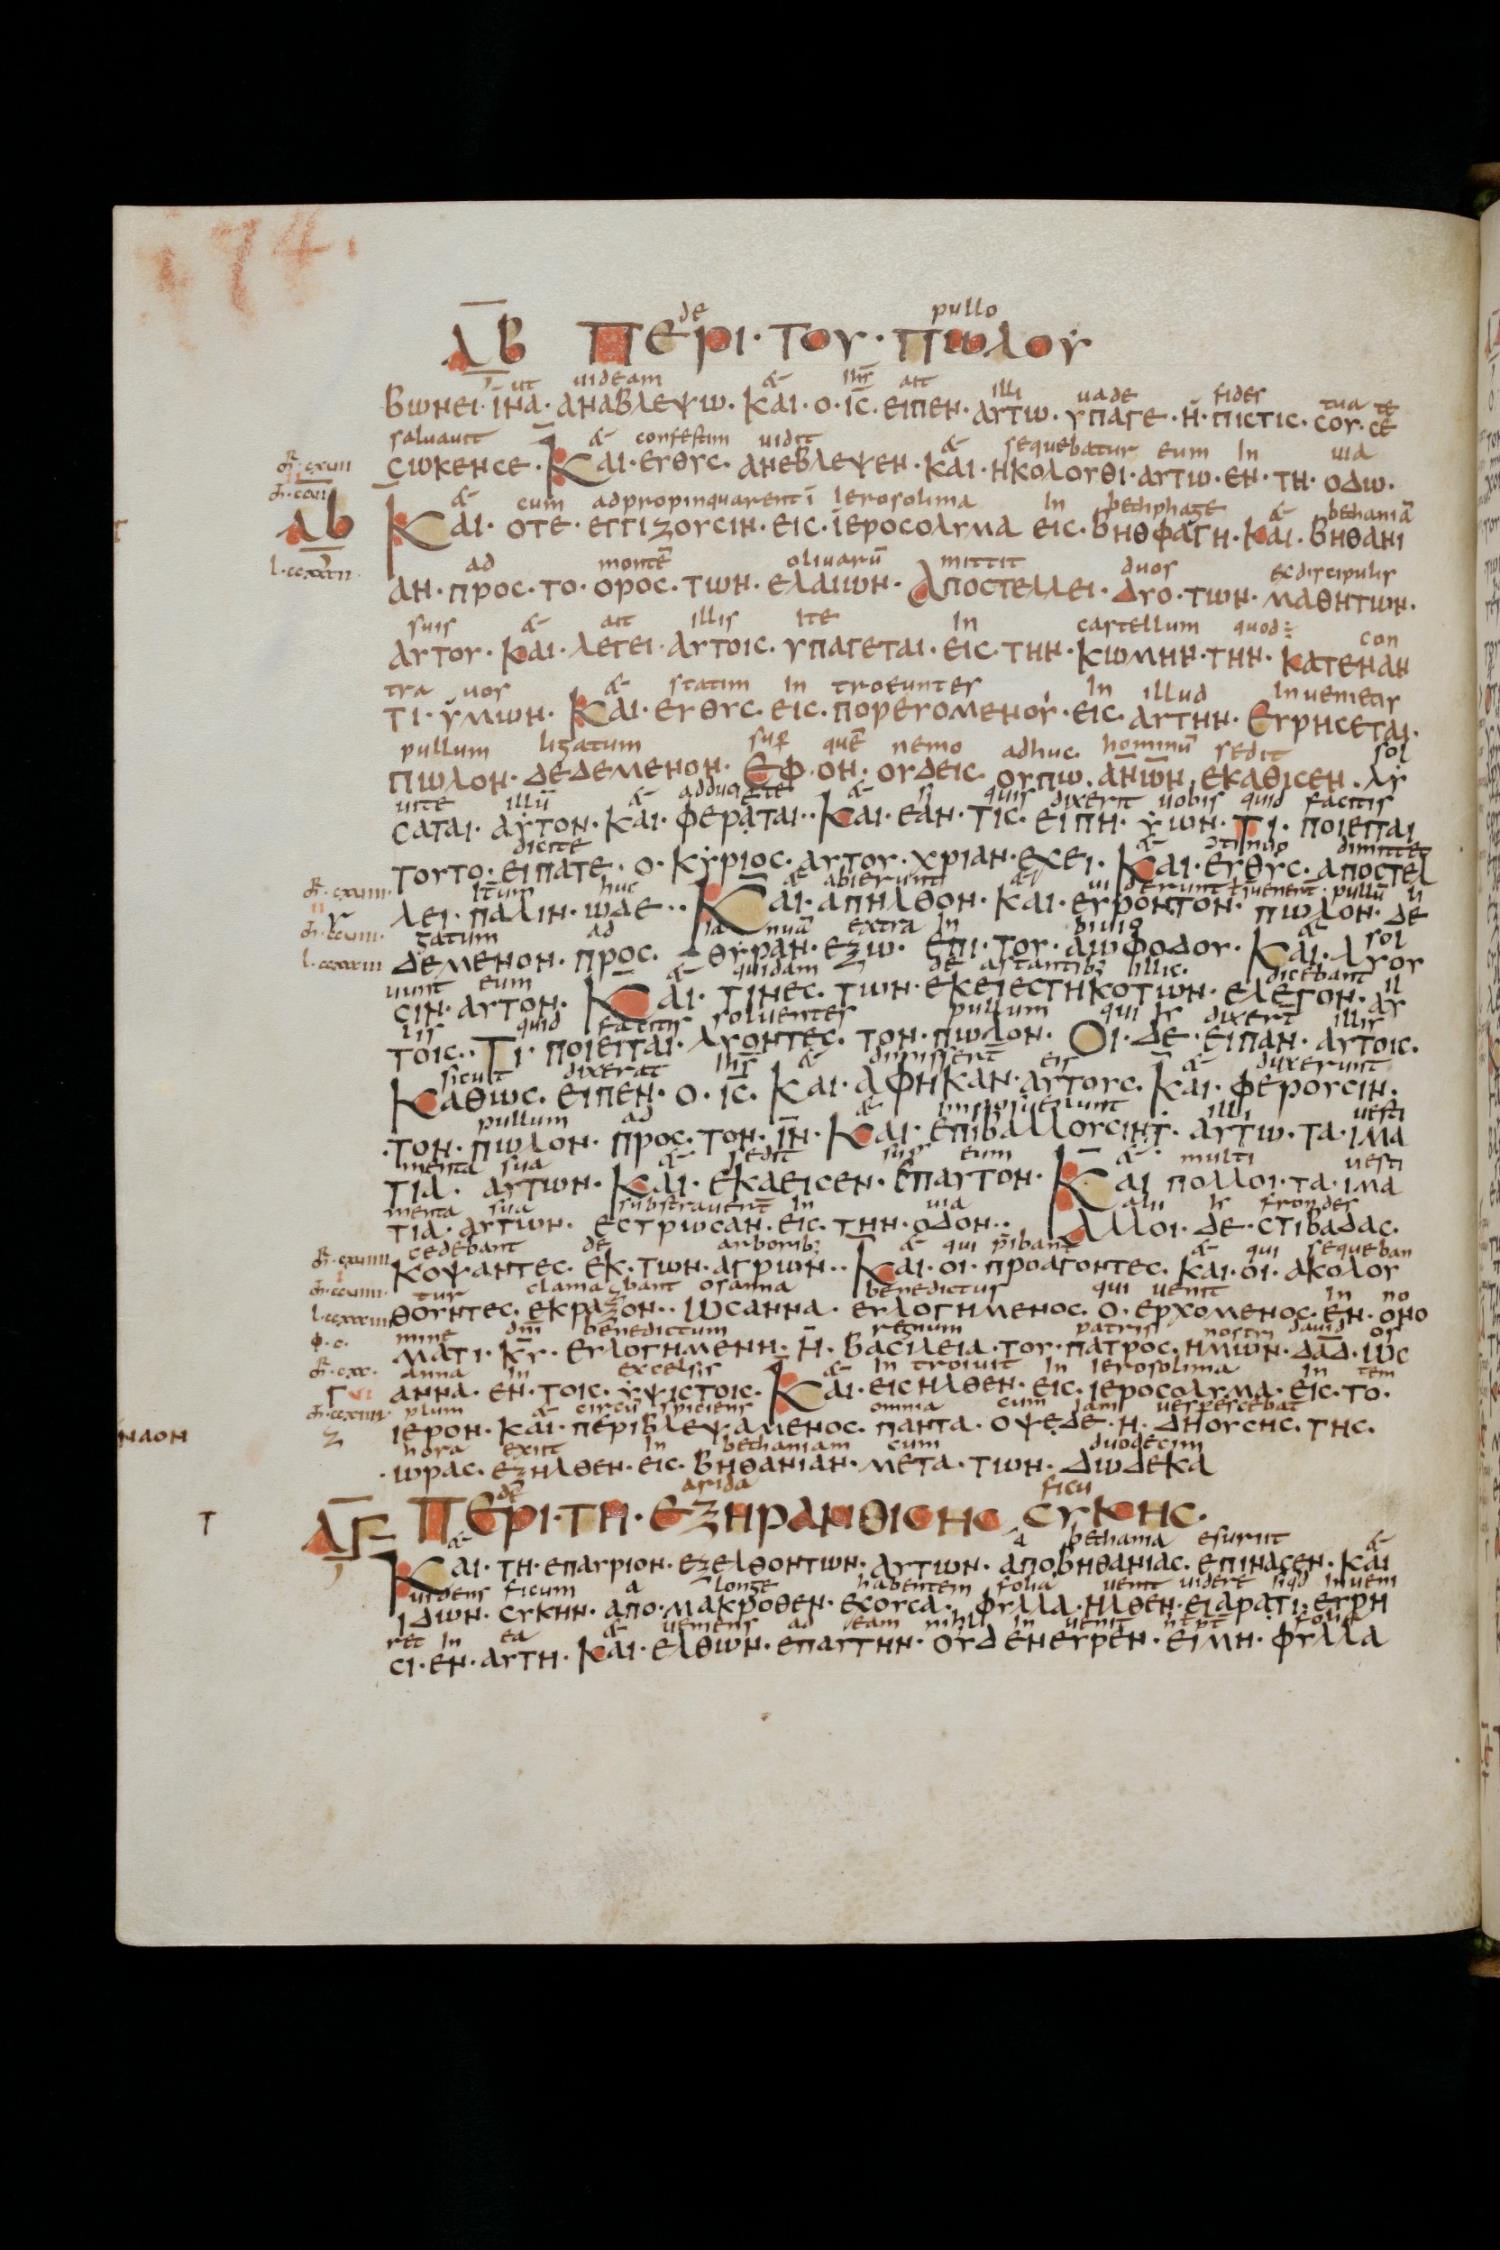 174.
de pullo
ΛΒ ΠΕΡΙ · ΤΟΥ · ΠΩΛΟΥ
ut uideam & ihs ait illi uade fides tua te
ΒΩΝΕΙ · ΙΝΑ · ΑΝΑΒΛΕΨΩ · ΚΑΙ · Ο · ΙC̅ · ΕΙΠΕΝ · ΑΥΤΩ · ΥΠΑΓΕ · Η · ΠΙCΤΙC · CΟΥ · CΕ
saluauit & confestim uidit & sequebatur eum In uia
CΩΚΕΝCΕ · ΚΑΙ · ΕΥΘΥC · ΑΝΕΒΛΕΨΕΝ · ΚΑΙ · ΗΚΟΛΟΥΘΙ · ΑΥΤΩ · ΕΝ · ΤΗ · ΟΔΩ ·
& cum adpropinquarent ī Ierosolima In bethphage & bethaniā
ΛΒ ΚΑΙ · ΟΤΕ · ΕΓΓΙΖΟΥCΙΝ · ΕΙC · ΙΕΡΟCΟΛΥΜΑ ΕΙC · ΒΗΘΦΑΓΗ · ΚΑΙ · ΒΗΘΑΝΙ
ad montē oliuarū mittit duos ex discipulis
ΑΝ · ΠΡΟC · ΤΟ · ΟΡΟC · ΤΩΝ · ΕΛΑΙΩΝ · ΑΠΟCΤΕΛΛΕΙ · ΔΥΟ · ΤΩΝ · ΜΑΘΗΤΩΝ ·
suis & ait illis Ite In castellum quod con
ΑΥΤΟΥ · ΚΑΙ · ΛΕΓΕΙ · ΑΥΤΟΙC · ΥΠΑΓΕΤΑΙ · ΕΙC · ΤΗΝ · ΚΩΜΗΝ · ΤΗΝ · ΚΑΤΕΝΑΝ
tra uos & statim In troeuntes In illud Inuenietis
ΤΙ · ΥΜΩΝ · ΚΑΙ · ΕΥΘΥC · ΕΙC · ΠΟΡΕΥΟΜΕΝΟΥ · ΕΙC · ΑΥΤΗΝ · ΕΥΡΗCΕΤΑΙ ·
pullum ligatum sup quē nemo adhuc hominū sedit sol
ΠΩΛΟΝ · ΔΕΔΕΜΕΝΟΝ · ΕΦ · ΟΝ · ΟΥΔΕΙC · ΟΥΠΩ · ΑΝ̅ΩΝ̅ · ΕΚΑΘΙCΕΝ · ΛΥ
uite illū & adducite & si quis dixerit uobis quid facitis
CΑΤΑΙ · ΑΥΤΟΝ · ΚΑΙ · ΦΕΡΑΤΑΙ ·· ΚΑΙ · ΕΑΝ · ΤΙC · ΕΙΠΗ · ΥΩΝ · ΤΙ · ΠΟΙΕΙΤΑΙ
dicite & dimittet
ΤΟΥΤΟ · ΕΙΠΑΤΕ · Ο · ΚΥΡΙΟC · ΑΥΤΟΥ · ΧΡΙΑΝ · ΕΧΕΙ · ΚΑΙ · ΕΥΘΥC · ΑΠΟCΤΕΛ
Itum huc & abierunt & pullū li
ΛΕΙ · ΠΑΛΙΝ · ΩΔΕ ·· ΚΑΙ · ΑΠΗΛΘΟΝ · ΚΑΙ · ΕΥΡΟΝΤΟΝ · ΠΩΛΟΝ · ΔΕ
gatum ad ia nuā extra In biuio & sol
ΔΕΜΕΝΟΝ · ΠΡΟC · ΘΥΡΑΝ · ΕΞΩ · ΕΠΙ · ΤΟΥ · ΑΜΦΟΔΟΥ · ΚΑΙ · ΛΥΟΥ
uunt eum & quidam de astantibus illic dicebant il
CΙΝ · ΑΥΤΟΝ · ΚΑΙ · ΤΙΝΕC · ΤΩΝ · ΕΚΕΙΕCΤΗΚΟΤΩΝ · ΕΛΕΓΟΝ · ΑΥ
lis quid facitis soluentes pullum qui dixert illis
ΤΟΙC ·· ΤΙ · ΠΟΙΕΙΤΑΙ · ΛΥΟΝΤΕC · ΤΟΝ · ΠΩΛΟΝ · ΟΙ · ΔΕ · ΕΙΠΑΝ · ΑΥΤΟΙC ·
sicut dixerat ihs & dimisert eis & duxerunt
ΚΑΘΩC · ΕΙΠΕΝ · Ο · ΙC̅ · ΚΑΙ · ΑΦΗΚΑΝ · ΑΥΤΟΥC · ΚΑΙ · ΦΕΡΟΥCΙΝ ·
pullum ad & illi uesti
· ΤΟΝ · ΠΩΛΟΝ · ΠΡΟC · ΤΟΝ · ΙΝ̅ · ΚΑΙ · ΕΠΙΒΑΛΛΟΥCΙΝ · ΑΥΤΩ · ΤΑ · ΙΜΑ
menta sua & sedit sup eum & multi uesti
ΤΙΑ · ΑΥΤΩΝ · ΚΑΙ · ΕΚΑΕΙCΕΝ · ΕΠΑΥΤΟΝ · ΚΑΙ ΠΟΛΛΟΙ · ΤΑ · ΙΜΑ
menta sua substrauert In uia alii frondes
ΤΙΑ · ΑΥΤΩΝ · ΕCΤΡΩCΑΝ · ΕΙC · ΤΗΝ · ΟΔΟΝ ·· ΑΛΛΟΙ · ΔΕ · CΤΙΒΑΔΑC ·
cedebant de arborib; & qui pibant & qui sequeban
ΚΟΨΑΝΤΕC · ΕΚ · ΤΩΝ · ΑΓΡΩΝ ·· ΚΑΙ · ΟΙ · ΠΡΟΑΓΟΝΤΕC · ΚΑΙ · ΟΙ · ΑΚΟΛΟΥ
tur clamabant osanna benedictus qui uenit in no
ΘΟΥΝΤΕC · ΕΚΡΑΖΟΝ ·· ΩCΑΝΝΑ · ΕΥΛΟΓΗΜΕΝΟC · Ο · ΕΡΧΟΜΕΝΟC · ΕΝ · ΟΝΟ
mine dni benedictum regnum patris nostri dauid os
ΜΑΤΙ · ΚΥ̅ · ΕΥΛΟΓΗΜΕΝΗ · Η · ΒΑCΙΛΕΙΑ · ΤΟΥ · ΠΑΤΡΟC · ΗΜΩΝ · ΔΑΔ̅ · ΩC
anna in excelsis & In troiuit In Ierosolima In tem
ΑΝΝΑ · ΕΝ · ΤΟΙC · ΥΨΙCΤΟΙC · ΚΑΙ · ΕΙCΗΛΘΕΝ · ΕΙC · ΙΕΡΟCΟΛΥΜΑ · ΕΙC · ΤΟ ·
plum & circū spiciens omnia cum iam uesperescebat
ΝΑΟΝ ΙΕΡΟΝ · ΚΑΙ · ΠΕΡΙΒΛΕΨΑΜΕΝΟC · ΠΑΝΤΑ · ΟΨΕΔΕ · Η · ΔΗΟΥCΗC · ΤΗC ·
hora exiit In bethaniam cum duodecim
· ΩΡΑC · ΕΞΗΛΘΕΝ · ΕΙC · ΒΗΘΑΝΙΑΝ · ΜΕΤΑ · ΤΩΝ · ΔΩΔΕΚΑ
de arida ficu
ΛΓ ΠΕΡΙ · ΤΗ · ΕΞΗΡΑΝΘΙCΗC CΥΚΗC ·
& a bethania esuriit &
ΚΑΙ · ΤΗ · ΕΠΑΥΡΙΟΝ · ΕΞΕΛΘΟΝΤΩΝ · ΑΥΤΩΝ · ΑΠΟΒΗΘΑΝΙΑC · ΕΠΙΝΑCΕΝ · ΚΑΙ
uidens ficum a longe habentem folia uenit uidere siqd inueni
ΙΔΩΝ · CΥΚΗΝ · ΑΠΟ · ΜΑΚΡΟΘΕΝ · ΕΧΟΥCΑ · ΦΥΛΛΑ · ΗΛΘΕΝ · ΕΙΑΡΑΤΙ · ΕΥΡΗ
ret In ea & ueniens ad eam nihil in uenit folia
CΙ · ΕΝ · ΑΥΤΗ · ΚΑΙ · ΕΛΘΩΝ · ΕΠΑΥΤΗΝ · ΟΥΔΕΝΕΥΡΕΝ · ΕΙΜΗ · ΦΥΛΛΑ